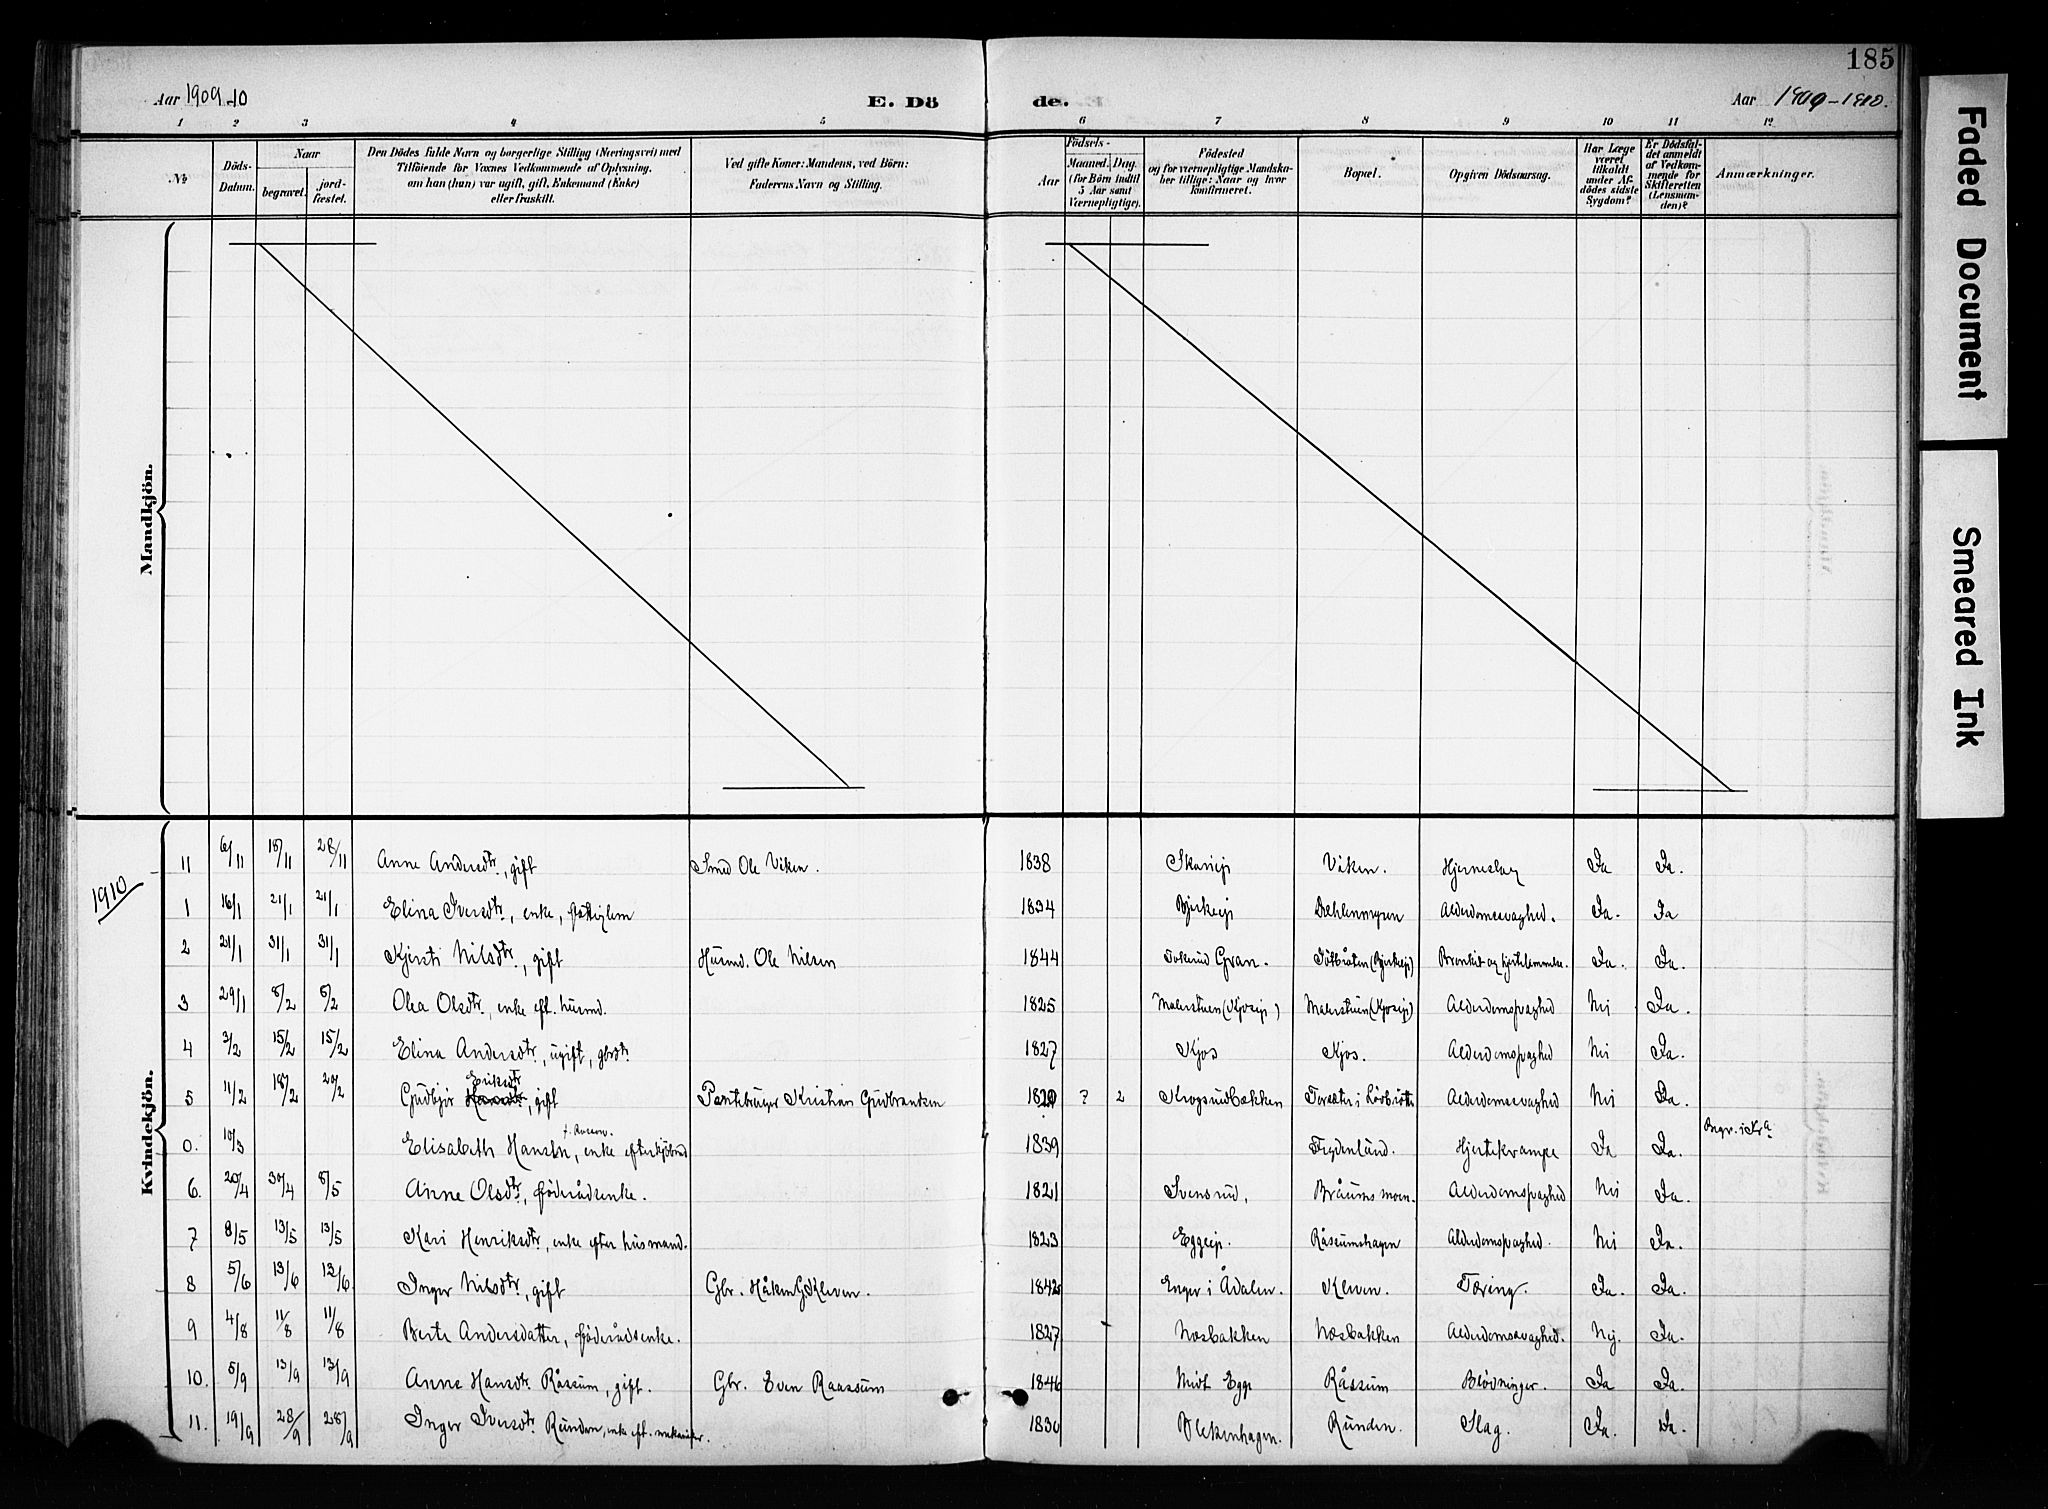 185
Aar 1909-10 E. Dö de. Aar 1909-1910.
1 2 3 4 5 6 7 8 9 10 11 12
№ Döds-Datum. Naar begravet. jord-fæstet. Den Dödes fulde Navn og borgerlige Stilling (Næringsvei) med Tilföiende for Voxnes Vedkommende af Oplysning, om han (hun) var ugift, gift, Enkemand (Enke) eller fraskilt. Ved gifte Koner: Mandens, ved Börn: Faderens Navn og Stilling. Födsels- Aar Maaned. Dag. (for Börn indtil 5 Aar samt Værnepligtige). Födested og for værnepligtige Mandskaber tillige: Naar og hvor konfirmeret. Bopæl. Opgiven Dödsaarsag. Har Læge været tilkaldt under Afdödes sidste Sygdom? Er Dödsfaldet anmeldt af Vedkommende for Skifteretten (Lensmanden)? Anmærkninger.
Mandkjön.
Kvindekjön.
11 6/11 18/11 28/11 Anne Andersdtr, gift Smed Ole Viken. 1838 Skarieje Viken. Hjerneslag Ja Ja.
1910
1 16/1 21/1 21/1 Elina Iversdtr, enke, fattiglem 1834 Bjerkeeje Dæhlenmyren Alderdomssvaghed. Ja. Ja
2 21/1 31/1 31/1 Kjersti Nilsdtr, gift Husmd. Ole Nilsen 1844 Gran. (Bjerkeeje) Bronkit og hjertelammelse. Ja. Ja.
3 29/1 8/2 8/2 Olea Olsdtr, enke eft. husmd. 1825 Malerstuen (Kjoseje) Malerstuen (Kjoseje) Alderdomssvaghed Nei Ja.
4 3/2 15/2 15/2 Elina Andersdtr, ugift, gbrdtr 1827 Kjos Kjos. Alderdomssvaghed Nei Ja.
5 11/2 18/2 20/2 Gudbjør Eriksdtr, gift Kristian Gudbransen 1829 ? 2 Krogsrudbakken Alderdomssvaghed Nei Ja.
0. 10/3 Elisabeth Hansen, enke efter kjöbmd 1839 Frydenlund. Hjertekrampe Ja Ja. Begr. i Kra
6. 20/4 30/4 8/5 Anne Olsdtr, föderådsenke. 1821 Svensrud, Bråumsmoen. Alderdomssvaghed Nei Ja.
7 8/5 13/5 13/5 Kari Henriksdtr, enke efter husmand. 1823 Eggeeje. Råssumshagen Alderdomssvaghed. Nei Ja.
8 5/6 13/6 13/6 Inger Nilsdtr, gift Gbr. Håken G. Kleven. 1842 Enger i Ådalen. Kleven. Tæring. Ja. Ja.
9 4/8 11/8 11/8 Berte Andersdatter, föderådsenke. 1827 Næsbakken Næsbakken Alderdomssvaghed. Nej. Ja.
10. 5/9 13/9 13/9 Anne Hansdtr. Råssum, gift. Gbr. Even Raassum 1846 Midt Egge Råssum Blödninger. Ja Ja.
11. 19/9 28/9 28/9 Inger Iversdtr Runden, enke eft. mekaniker. 1830 Blekenhagen. Runden. Slag. Ja. Ja.
Faded Document
Smeared Ink